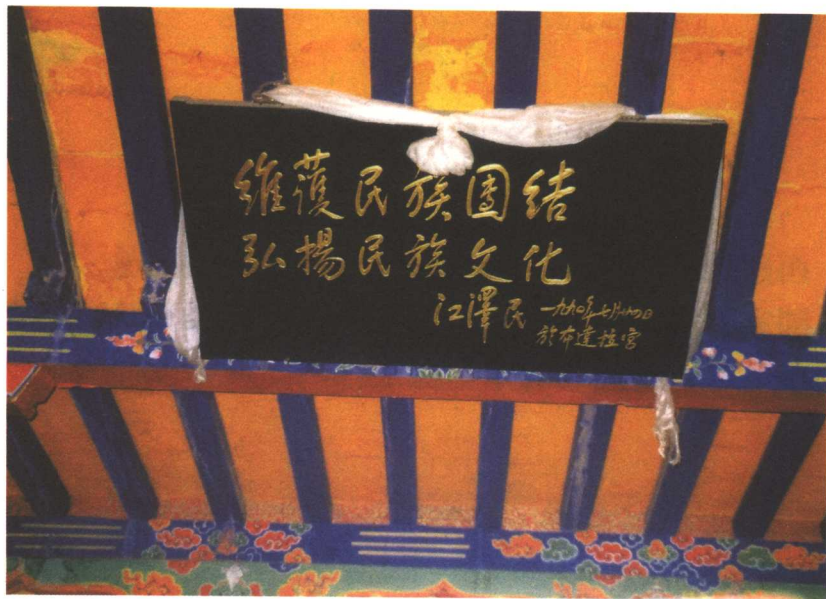 維護民族團結
弘揚民族文化
江澤民
一九九〇年七月廿四日
於布達拉宮